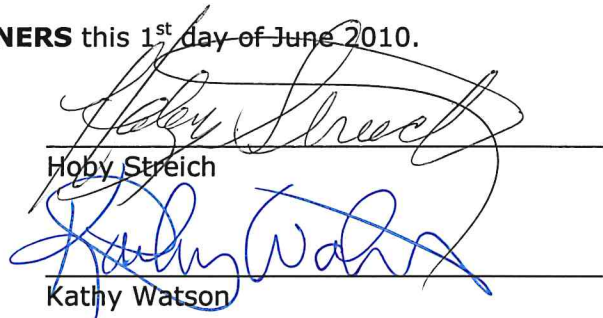 NERS this 1st day of June 2010.
Hoby Streich
Hoby Streich
Kathy Watson
Kathy Watson